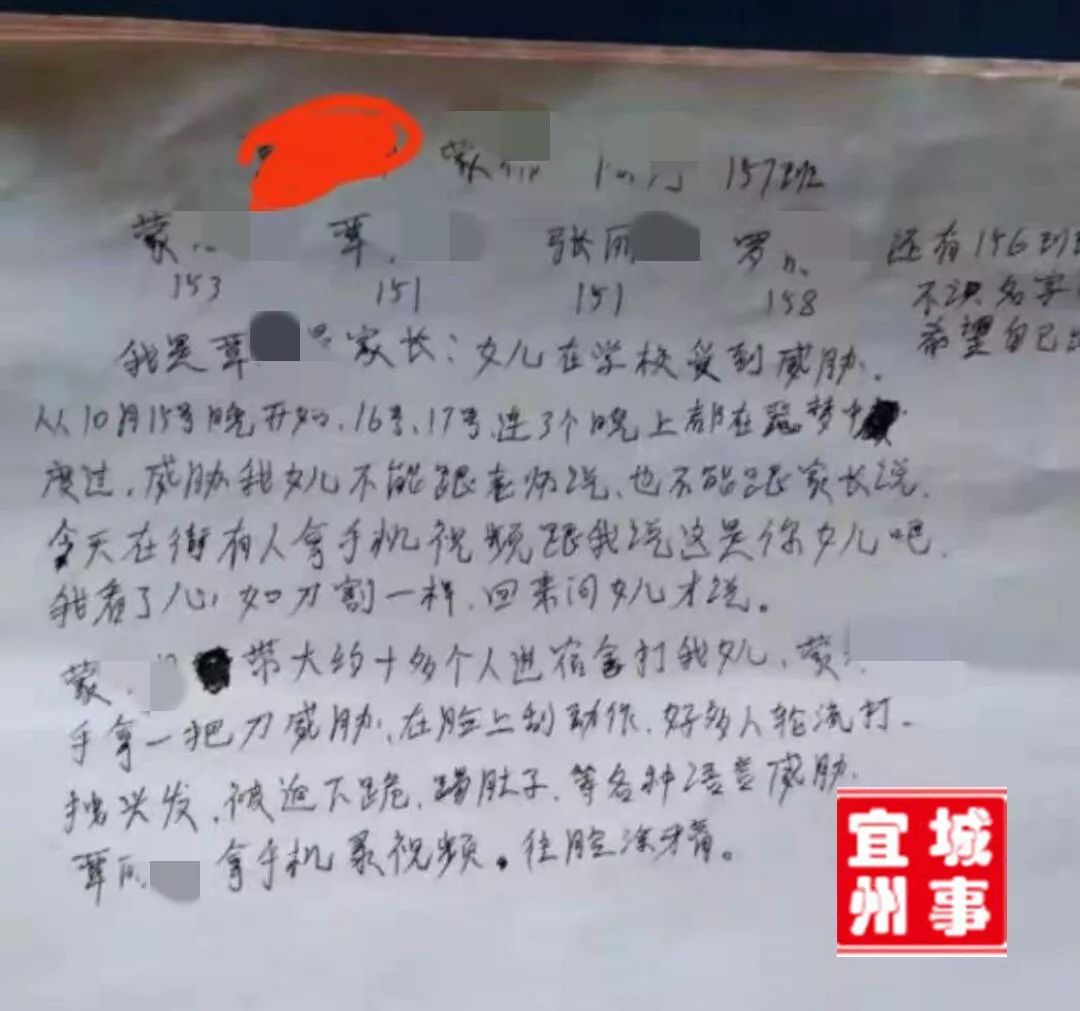 蒙 157班
蒙 覃 张丽 罗 还有156到
153 151 151 158 不识名字
希望自己
我是覃 家长：女儿在学校受到威胁.
从10月15号晚开始、16号、17号、连3个晚上都在噩梦中
度过，威胁我女儿不能跟老师说、也不能跟家长说.
今天在街有人拿手机视频跟我说这是你女儿吧.
我看了心如刀割一样.回来问女儿才说。
蒙 带大约十多个人进宿舍打我女儿、蒙
手拿一把刀威胁、在脸上刮动作、好多人轮流打.
拽头发、被迫下跪、踢肚子、等各种语言威胁.
覃 拿手机录视频。往脸涂牙膏。
宜州城事